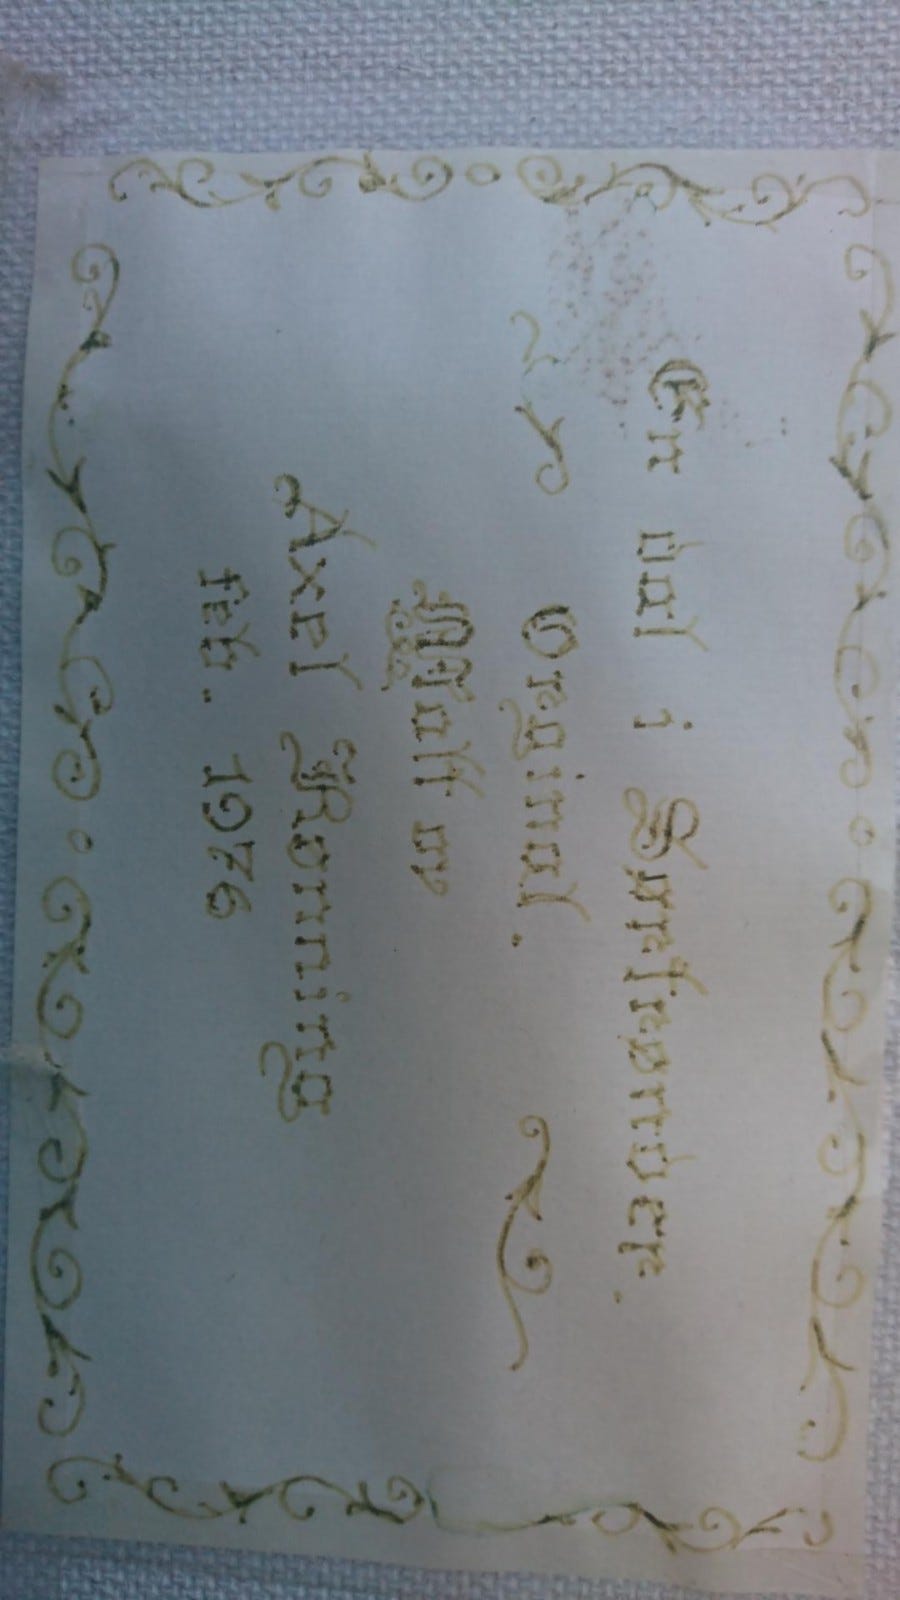 En dal i
Orginal.
Malt av
Axel
feb. 1976